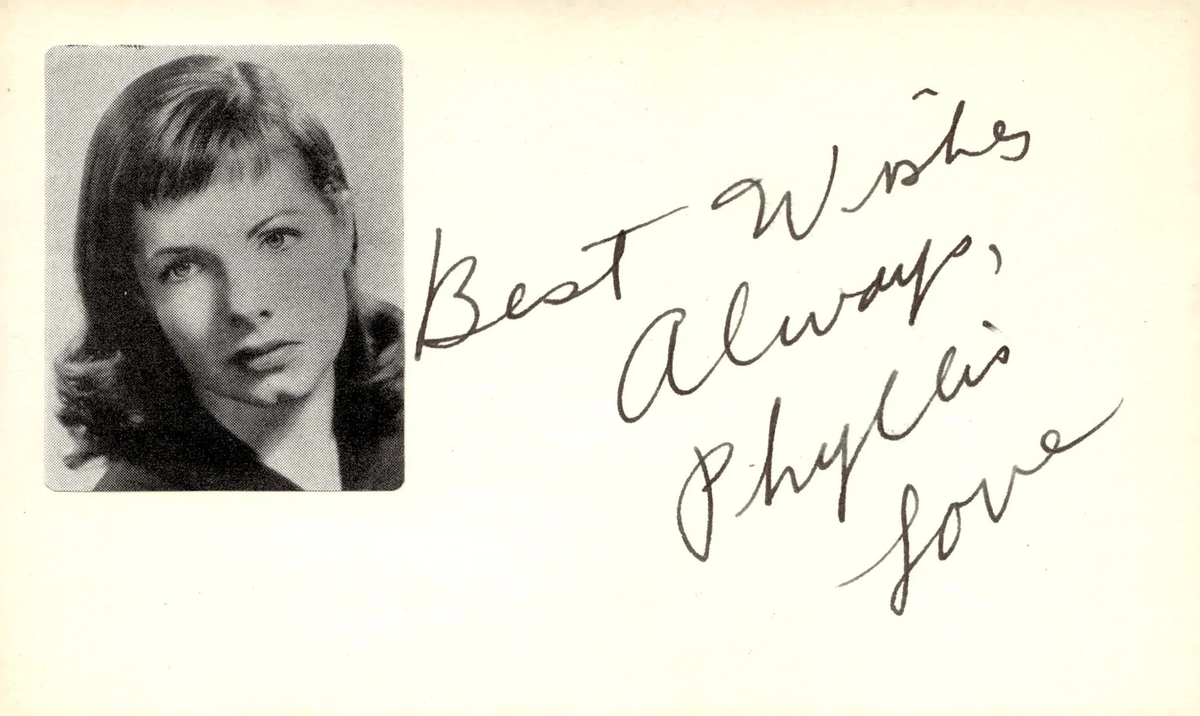 Best Wishes
Always,
Phyllis
Love